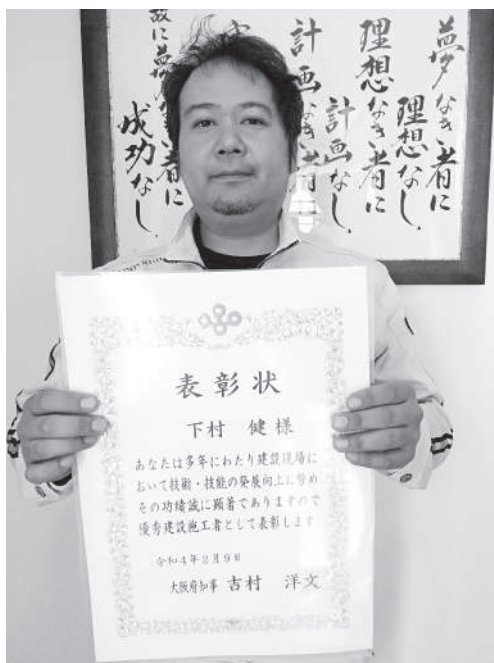 夢なき者に
理想なし
理想なき者に
計画なし
計画なき者に
故に夢なき者に
成功なし
表彰状
下村 健 様
あなたは多年にわたり建設現場に
おいて技術・技能の発展向上に努め
その功績誠に顕著でありますので
優秀建設施工者として表彰します
令和4年2月9日
大阪府知事 吉村 洋文